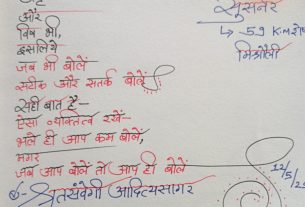 और
विष भी,
इसलिये
जब भी बोलें
सटीक और सतर्क बोलें
सही बात है—
ऐसा व्यक्तित्व रखें—
भले ही आप कम बोलें,
मगर
जब आप बोलें तो आप ही बोलें
श्रुतसंवेगी आदित्यसागर
सुसनेर
↳ 59 K.m
मिश्रोली
12/5/2